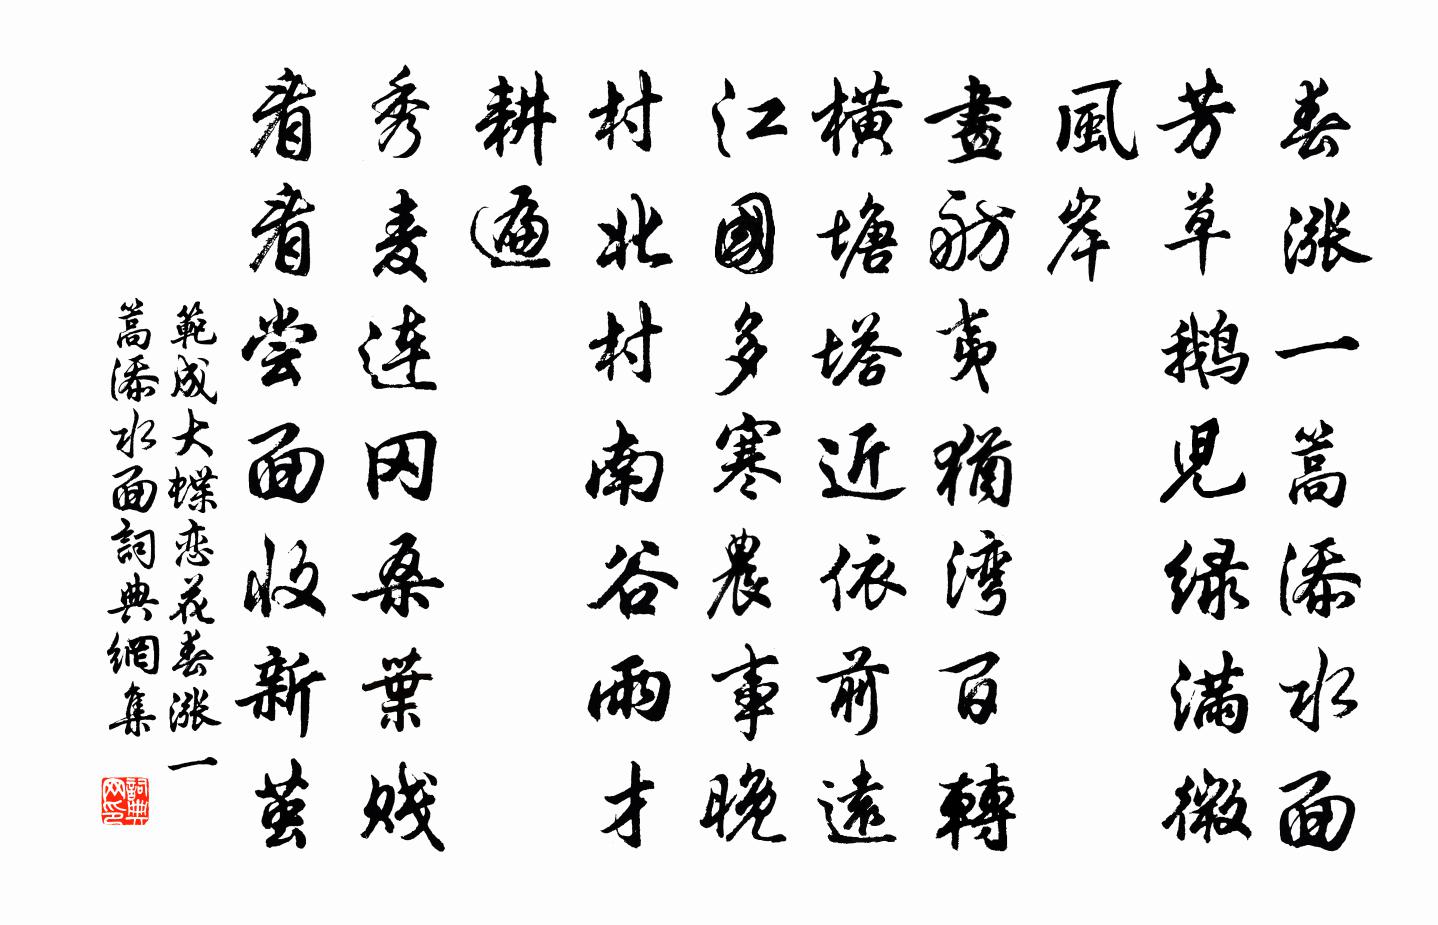 春涨一篙添水面
芳草鹅兒绿满微
風岸
畫舫夷猶湾百轉
横塘塔近依前遠
江國多寒農事晚
村北村南谷雨才
耕遍
秀麦連冈桑葉贱
看看尝面收新茧
範成大蝶恋花春涨一
篙添水面詞典網集
詞典网印